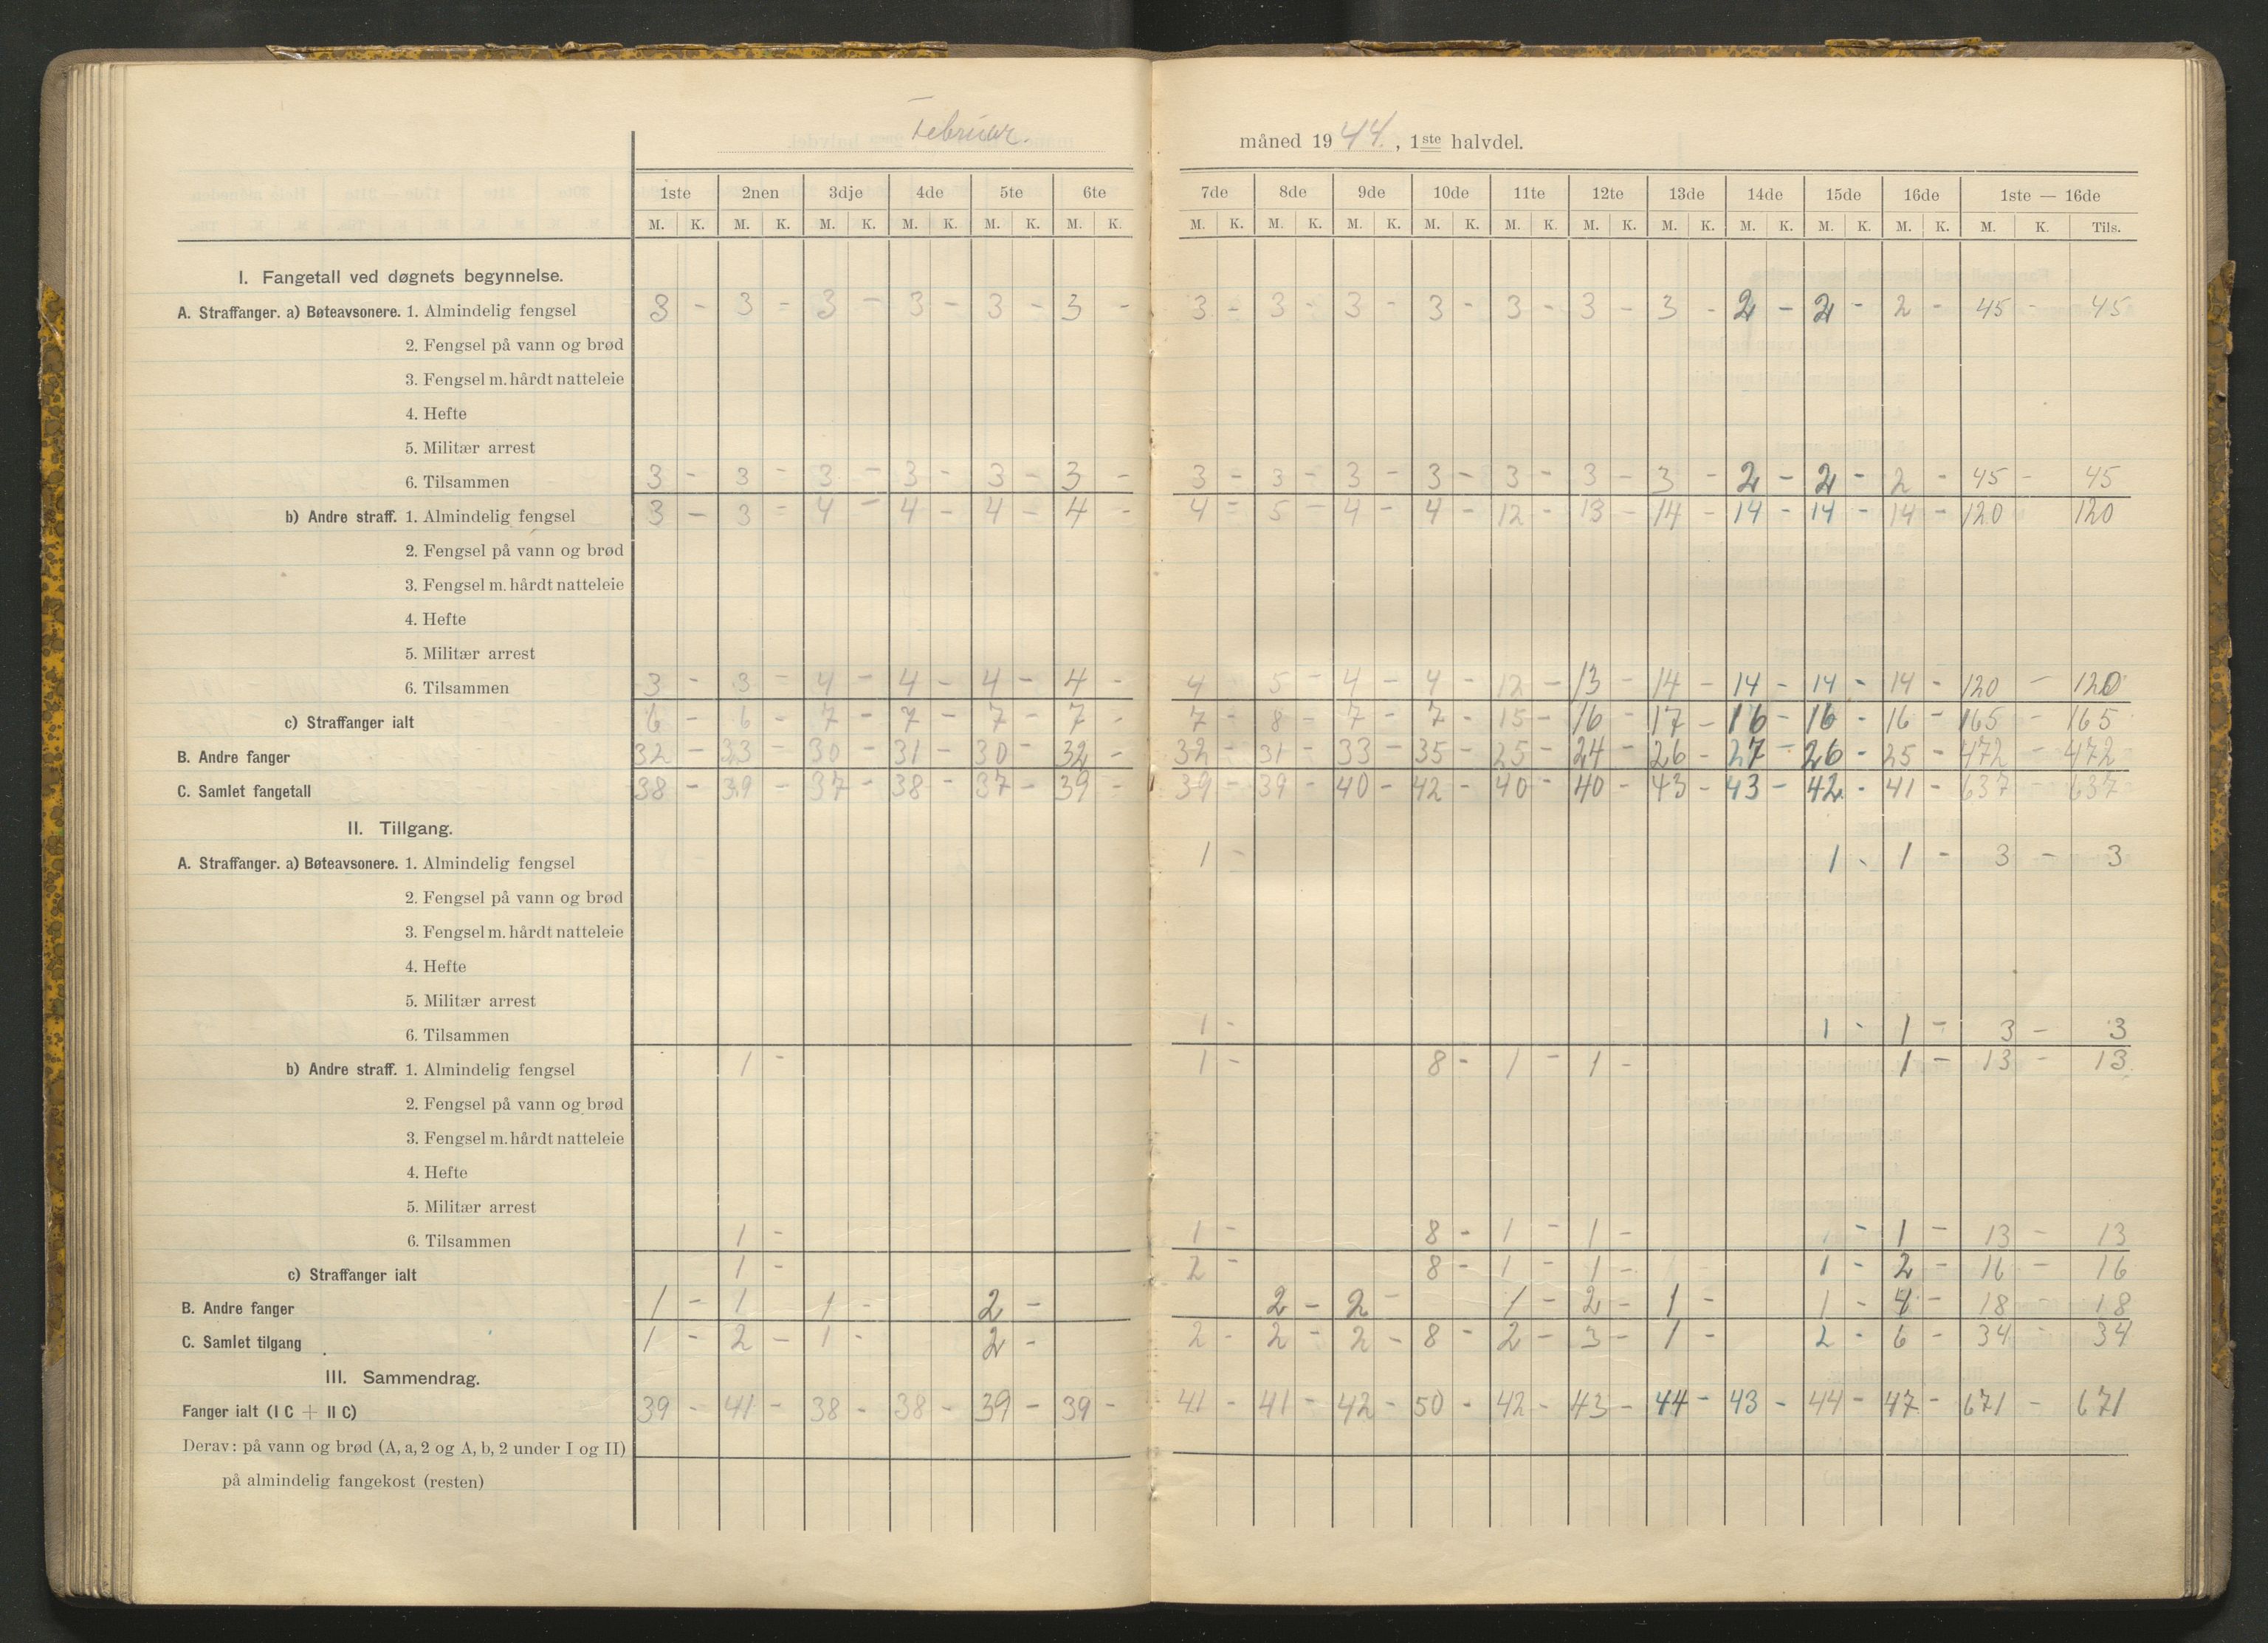 Februar. måned 1944., 1ste halvdel.
1ste 2nen 3dje 4de 5te 6te 7de 8de 9de 10de 11te 12te 13de 14de 15de 16de 1ste — 16de
M. K. M. K. M. K. M. K. M. K. M. K. M. K. M. K. M. K. M. K. M. K. M. K. M. K. M. K. M. K. M. K. M. K. Tils.
I. Fangetall ved døgnets begynnelse.
A. Straffanger. a) Bøteavsonere. 1. Almindelig fengsel 3 - 3 - 3 - 3 - 3 - 3 - 3 - 3 - 3 - 3 - 3 - 3 - 3 - 2 - 2 - 2 - 45 - 45
2. Fengsel på vann og brød
3. Fengsel m. hårdt natteleie
4. Hefte
5. Militær arrest
6. Tilsammen 3 - 3 - 3 - 3 - 3 - 3 - 3 - 3 - 3 - 3 - 3 - 3 - 3 - 2 - 2 - 2 - 45 - 45
b) Andre straff. 1. Almindelig fengsel 3 - 3 - 4 - 4 - 4 - 4 - 4 - 5 - 4 - 4 - 12 - 13 - 14 - 14 - 14 - 14 - 120 120
2. Fengsel på vann og brød
3. Fengsel m. hårdt natteleie
4. Hefte
5. Militær arrest
6. Tilsammen 3 - 3 - 4 - 4 - 4 - 4 - 4 5 - 4 - 4 - 12 - 13 - 14 - 14 - 14 - 14 - 120 - 120
c) Straffanger ialt 6 - 6 - 7 - 7 - 7 - 7 - 7 - 8 - 7 - 7 - 15 - 16 - 17 - 16 - 16 - 16 - 165 - 165
B. Andre fanger 32 - 33 - 30 - 31 - 30 - 32 - 32 - 31 - 33 - 35 - 25 - 24 - 26 - 27 - 26 - 25 - 472 - 472
C. Samlet fangetall 38 - 39 - 37 - 38 - 37 - 39 - 39 - 39 - 40 - 42 - 40 - 40 - 43 - 43 - 42 - 41 - 637 - 637
II. Tillgang.
A. Straffanger. a) Bøteavsonere. 1. Almindelig fengsel 1 - 1 - 1 - 3 - 3
2. Fengsel på vann og brød
3. Fengsel m. hårdt natteleie
4. Hefte
5. Militær arrest
6. Tilsammen 1 - 1 - 1 - 3 - 3
b) Andre straff. 1. Almindelig fengsel 1 - 1 - 8 - 1 - 1 - 1 - 13 - 13
2. Fengsel på vann og brød
3. Fengsel m. hårdt natteleie
4. Hefte
5. Militær arrest
6. Tilsammen 1 - 1 - 8 - 1 - 1 - - 1 - 13 - 13
c) Straffanger ialt 1 - 2 - 8 - 1 - 1 - 1 - 2 - 16 - 16
B. Andre fanger 1 - 1 1 - 2 - 2 - 2 - 1 - 2 - 1 - 1 - 4 - 18 - 18
C. Samlet tilgang 1 - 2 - 1 - 2 - 2 - 2 - 2 - 8 - 2 - 3 - 1 - 2 - 6 - 34 - 34
III. Sammendrag.
Fanger ialt (I C + II C) 39 - 41 - 38 - 38 - 39 - 39 - 41 - 41 - 42 - 50 - 42 - 43 - 44 - 43 - 44 - 47 - 671 - 671
Derav: på vann og brød (A, a, 2 og A, b, 2 under I og II)
på almindelig fangekost (resten)